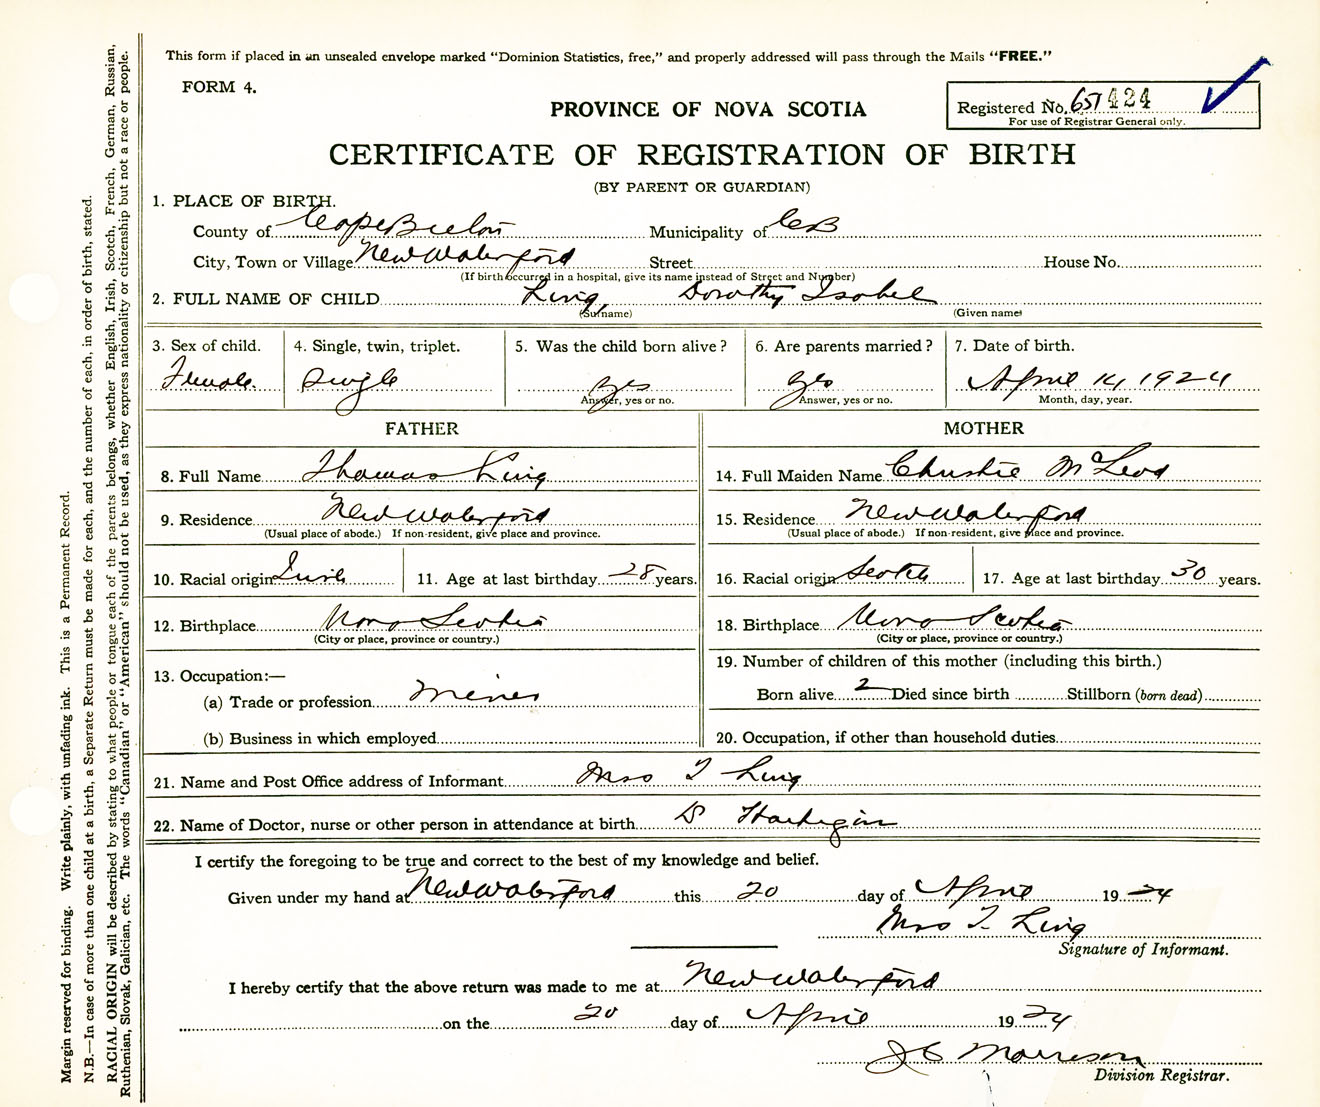 This form if placed in an unsealed envelope marked “Dominion Statistics, free,” and properly addressed will pass through the Mails “FREE.”
FORM 4.
Registered No. 657424
For use of Registrar General only.
PROVINCE OF NOVA SCOTIA
CERTIFICATE OF REGISTRATION OF BIRTH
(BY PARENT OR GUARDIAN)
1. PLACE OF BIRTH.
County of Cape Breton Municipality of CB
City, Town or Village New Waterford Street House No.
(If birth occurred in a hospital, give its name instead of Street and Number)
2. FULL NAME OF CHILD Ling, Dorothy Isobel
(Surname) (Given name)
3. Sex of child. 4. Single, twin, triplet. 5. Was the child born alive? 6. Are parents married? 7. Date of birth.
Female Single yes yes April 14, 1924
Answer, yes or no. Answer, yes or no. Month, day, year.
FATHER MOTHER
8. Full Name Thomas Ling 14. Full Maiden Name Christie McLeod
9. Residence New Waterford 15. Residence New Waterford
(Usual place of abode.) If non-resident, give place and province. (Usual place of abode.) If non-resident, give place and province.
10. Racial origin Irish 11. Age at last birthday 28 years. 16. Racial origin Scotch 17. Age at last birthday 30 years.
12. Birthplace Nova Scotia 18. Birthplace Nova Scotia
(City or place, province or country.) (City or place, province or country.)
13. Occupation:— 19. Number of children of this mother (including this birth.)
(a) Trade or profession Miner Born alive 2 Died since birth Stillborn (born dead)
(b) Business in which employed 20. Occupation, if other than household duties
21. Name and Post Office address of Informant Mrs T Ling
22. Name of Doctor, nurse or other person in attendance at birth Dr Hartigan
I certify the foregoing to be true and correct to the best of my knowledge and belief.
Given under my hand at New Waterford this 20 day of April 1924
Mrs T. Ling
Signature of Informant.
I hereby certify that the above return was made to me at New Waterford
on the 20 day of April 1924
J C Morrison
Division Registrar.
Margin reserved for binding. Write plainly, with unfading ink. This is a Permanent Record.
N.B.—In case of more than one child at a birth, a Separate Return must be made for each, and the number of each, in order of birth, stated.
RACIAL ORIGIN will be described by stating to what people or tongue each of the parents belongs, whether English, Irish, Scotch, French, German, Russian,
Ruthenian, Slovak, Galician, etc. The words “Canadian” or “American” should not be used, as they express nationality or citizenship but not a race or people.